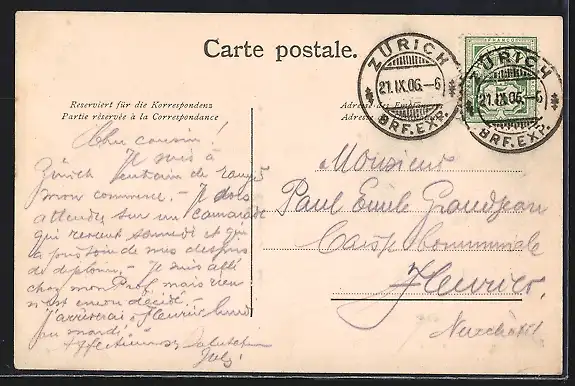 Carte postale.
ZÜRICH
21.IX.06.-6
BRF. EXP.
FRANCO
ZÜRICH
21.IX.06.-6
BRF. EXP.
Reserviert für die Korrespondenz
Partie réservée à la Correspondance
Adresse des Empfängers
Adresse
Cher cousin!
Je suis à
Zürich
mon commerce. - Je dois
attendre sur un camarade
qui revient samedi et qui
de diplome. - Je suis allé
chez mon Prof. mais rien
n'est encore décidé. -
J'arriverai à Fleurier lundi
ou mardi! -
Affectueuses
Monsieur
Paul Emile Grandjean
Caisse Communale
Fleurier.
Neuchâtel